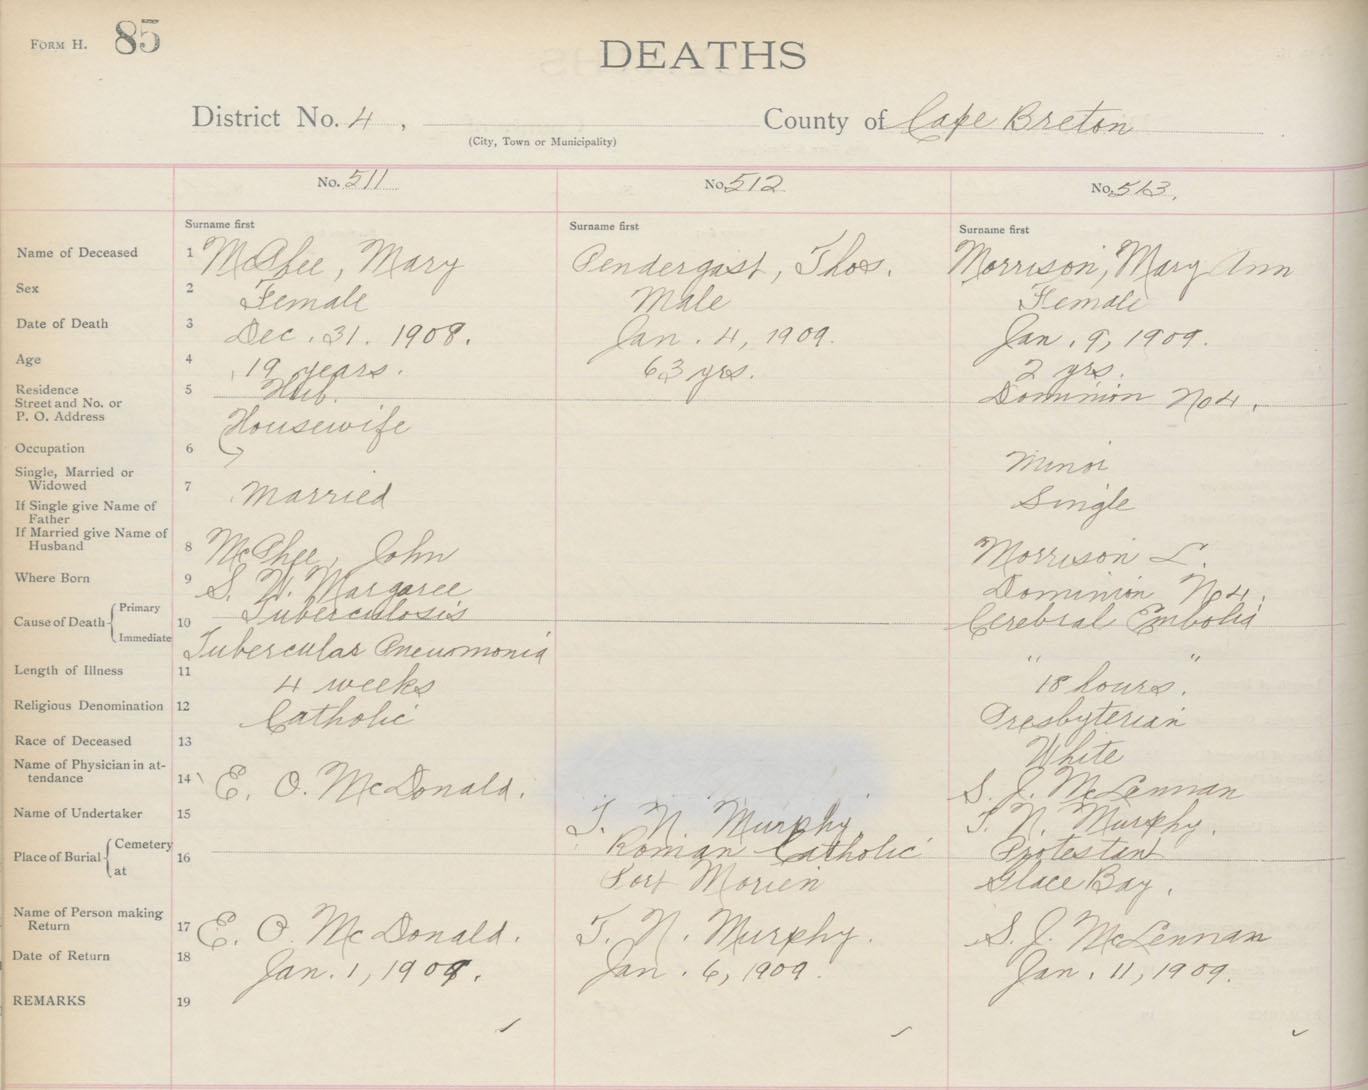 FORM H. 85
DEATHS
District No. 4, County of Cape Breton
(City, Town or Municipality)
No. 511 No. 512 No. 513.
Surname first Surname first Surname first
Name of Deceased 1 McPhee, Mary Pendergast, Thos. Morrison, Mary Ann
Sex 2 Female Male Female
Date of Death 3 Dec. 31. 1908. Jan. 4, 1909. Jan. 9, 1909.
Age 4 19 years. 63 yrs. 2 yrs.
Residence 5 Hub. Dominion No 4.
Street and No. or
P. O. Address Housewife
Occupation 6 Minor
Single, Married or
Widowed 7 Married Single
If Single give Name of
Father
If Married give Name of
Husband 8 McPhee, John Morrison L.
Where Born 9 S. W. Margaree Dominion No 4.
Cause of Death Primary 10 Tuberculosis Cerebral Embolia
Immediate Tubercular Pneumonia " "
Length of Illness 11 4 weeks 18 hours.
Religious Denomination 12 Catholic Presbyterian
Race of Deceased 13 White
Name of Physician in at-
tendance 14 E. O. McDonald. S. J. McLennan
Name of Undertaker 15 T. N. Murphy T. N. Murphy.
Place of Burial Cemetery 16 Roman Catholic Protestant
at Port Morien Glace Bay.
Name of Person making
Return 17 E. O. McDonald. T. N. Murphy. S. J. McLennan
Date of Return 18 Jan. 1, 1909. Jan. 6, 1909. Jan. 11, 1909.
REMARKS 19